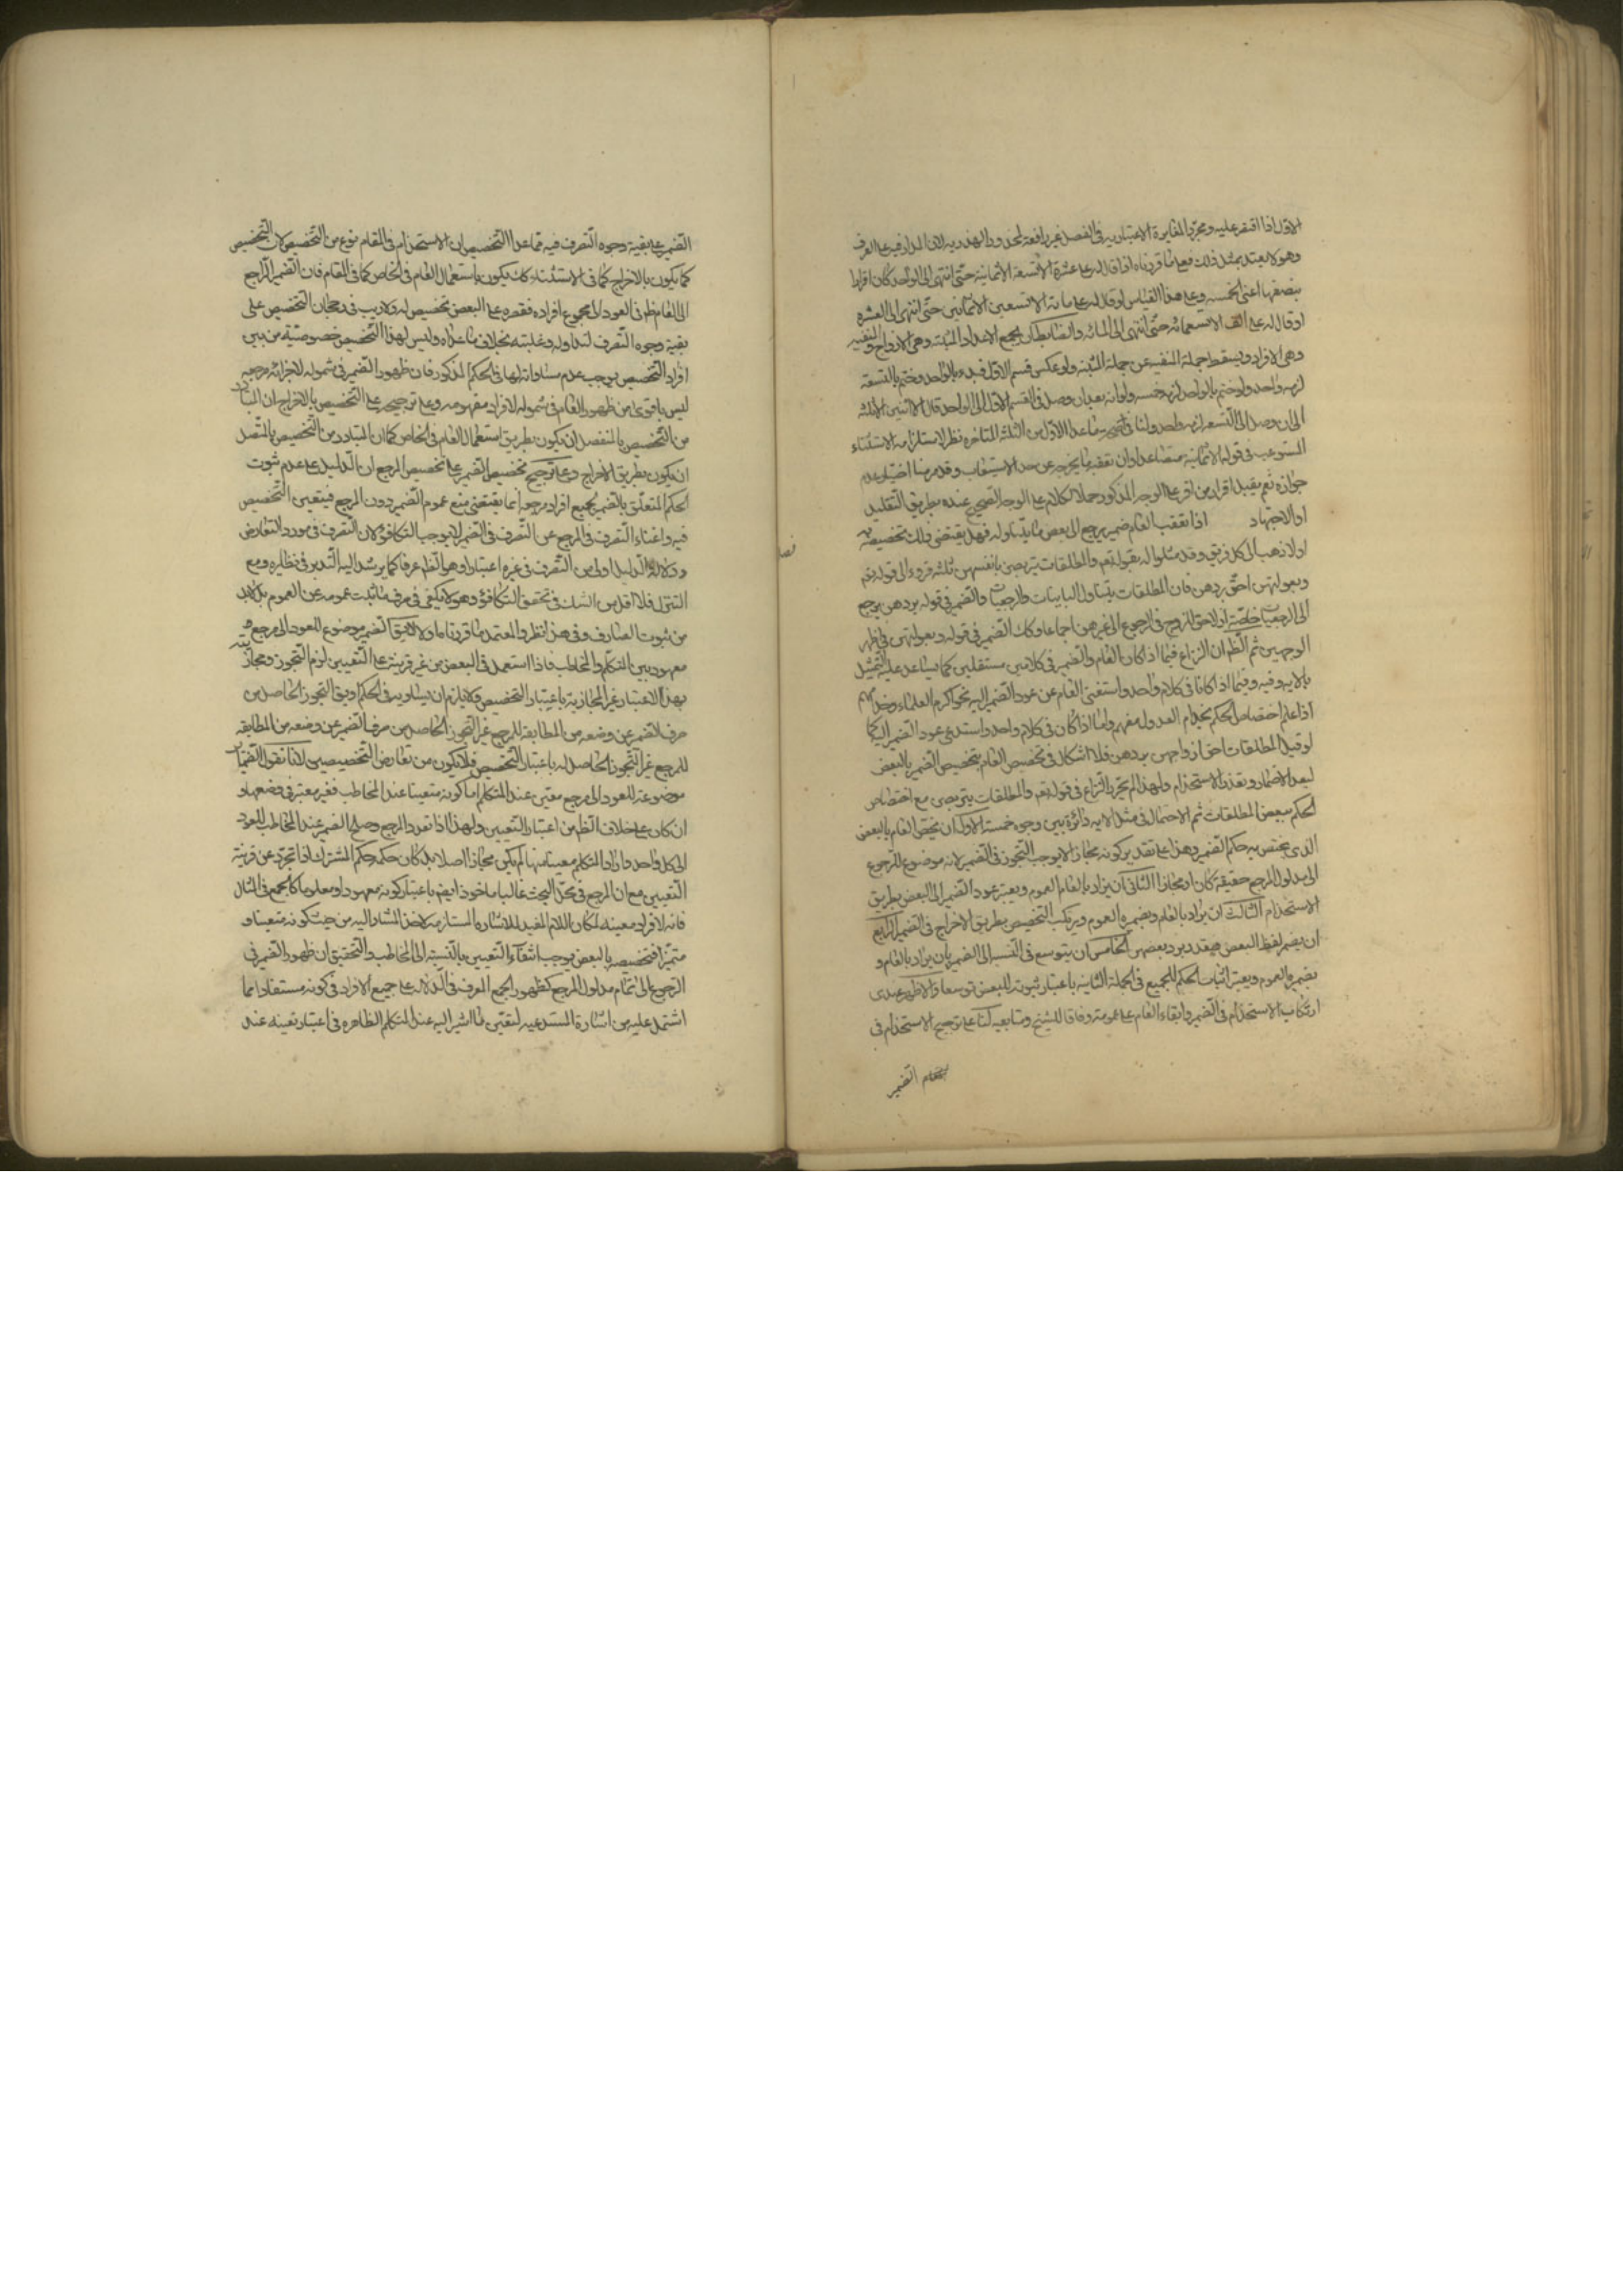 الاول اذا اقتصر عليه ومجرد المغايرة الاعتبارية في الفصل غير رافعة لمحذور الهذرية لان المدار فيه على العرف
وهو لا يعتد بمثل ذلك فعلى ما قررناه لو قال له على عشرة الا تسعة الا ثمانية حتى انتهى الى الواحد كان اقرارا
بنصفها اعنى الخمسه وعلى هذا القياس لو قال له على مائة الا تسعين الا ثمانين حتى انتهى الى العشرة
او قال له على الف الا تسعمائة حتى انتهى الى المائة والضابط ان يجمع الاعداد المثبتة وهى الازواج والمنفيه
وهى الافراد ويسقط جملة المنفيه عن جملة المثبته ولو عكس قسم الاول فبدء بالواحد وختم بالتسعة
لزمه واحد ولو ختم بالواحد لزمه خمسه ولو انه بعد ان وصل في القسم الاول الى الواحد قال الا اثنين الا ثلثه
الى ان وصل الى التسعة لزمه واحد ولنا في ما عدا الاول من الثلثة المتاخره نظر لاستلزامه الاستثناء
المستوعب في قوله الا ثمانية متصاعدا وان تعقبه ما يخرجه عن حد الاستيعاب وقد مر منا اختيار عدم
جوازه نعم يقبل اقراره من اقر على الوجه المذكور حملا لكلامه على الوجه الصحيح عنده بطريق التقليد
او الاجتهاد اذا تعقب العام ضمير يرجع الى بعض ما يتناوله فهل يقتضى ذلك تخصيصه به
اولا ذهب الى كل فريق وقد مثلوا له بقوله تعم والمطلقات يتربصن بانفسهن ثلثه قروء الى قوله تعم
وبعولتهن احق بردهن فان المطلقات يتناول الباينات والرجعيات والضمير في قوله بردهن يرجع
الى الرجعيات خاصة اذ لا حق للزوج في الرجوع الى غيرهن اجماعا وكك الضمير في قوله وبعولتهن في اظهر
الوجهين ثم الظ ان النزاع فيما اذا كان العام والضمير في كلامين مستقلين كما يساعد عليه التمثيل
بالايه وفيه وفيما اذا كانا في كلام واحد واستغنى العام عن عود الضمير اليه نحو اكرم العلماء وخدامهم
اذا علم اختصاص الحكم بخدام العدول منهم واما اذا كان في كلام واحد واستدعى عود الضمير اليه كما
لو قيل المطلقات احق ازواجهن بردهن فلا اشكال في تخصيص العام بتخصيص الضمير بالبعض
لبعد الاضمار وتعذر الاستخدام ولهذا لم يحرر النزاع في قوله تعم والمطلقات يتربصن مع اختصاص
الحكم ببعض المطلقات ثم الاحتمال في مثل الايه دائرة بين وجوه خمسة الاول ان يخص العام بالبعض
الذى يختص به حكم الضمير وهذا على تقدير كونه مجازا لا يوجب التجوز في الضمير لانه موضوع للرجوع
الى مدلول المرجع حقيقة كان او مجازا الثانى ان يراد بالعام العموم ويعتبر عود الضمير الى البعض بطريق
الاستخدام الثالث ان يراد بالعام وبضميره العموم ويرتكب التخصيص بطريق الاخراج في الضمير الرابع
ان يضمر لفظ البعض فيقدر برد بعضهن الخامس ان يتوسع في النسب الى الضمير بان يراد بالعام و
بضميره العموم ويعتبر اثبات الحكم للجميع في الجملة الثانيه باعتبار ثبوته للبعض توسعا والاظهر عندى
ارتكاب الاستخدام في الضمير وابقاء العام على عمومه وفاقا للشيخ ومتابعيه لنا على ترجيح الاستخدام في
الضمير
الضمير على بقية وجوه التصرف فيه مما عدا التخصيص ان الاستخدام في المقام نوع من التخصيص لان التخصيص
كما يكون بالاخراج كما في الاستثناء كك يكون باستعمال العام في الخاص كما في المقام فان الضمير الراجع
الى العام ظ في العود الى مجموع افراده فقصره على البعض تخصيص له ولا ريب في رجحان التخصيص على
بقية وجوه التصرف لتداوله وغلبته بخلاف ما عداه وليس لهذا التخصيص خصوصية من بين
افراد التخصيص يوجب عدم مساواته لها في الحكم المذكور فان ظهور الضمير في شموله لاجزاء مرجعه
ليس باقوى من ظهور العام في شموله لافراد مفهومه وعلى ترجيحه على التخصيص بالاخراج ان المتبادر
من التخصيص بالمنفصل ان يكون بطريق استعمال العام في الخاص كما ان المتبادر من التخصيص بالمتصل
ان يكون بطريق الاخراج وعلى ترجيح تخصيص الضمير على تخصيص المرجع ان الدليل على عدم ثبوت
الحكم المتعلق بالضمير لجميع افراد مرجعه انما يقتضى منع عموم الضمير دون المرجع فيتعين التخصيص
فيه واغناء التصرف في المرجع عن التصرف في الضمير لا يوجب التكافؤ لان التصرف في مورد التعارض
ودلالة الدليل اولى من التصرف في غيره اعتبارا وهو الظ عرفا كما يرشد اليه التدبر في نظايره ومع
التنزل فلا اقل من الشك في تحقق التكافؤ وهو لا يكفى في صرف ما ثبت عمومه عن العموم بل لا بد
من ثبوت الصارف وفي هذا نظر والمعتمد ما قررناه اولا لا يق الضمير موضوع للعود الى مرجع
معهود بين المتكلم والمخاطب فاذا استعمل في البعض من غير قرينة على التعيين لزم التجوز ومجازيته
بهذا الاعتبار غير المجازية باعتبار التخصيص فلا يلزم ان يساويه في الحكم او يق التجوز الحاصل من
صرف الضمير عن وضعه من المطابقة للمرجع غير التجوز الحاصل من صرف الضمير عن وضعه من المطابقه
للمرجع غير التجوز الحاصل له باعتبار التخصيص فلا يكون من تعارض التخصيصين لانا نقول الضمائر
موضوعة للعود الى مرجع معين عند المتكلم اما كونه متعينا عند المخاطب فغير معتبر في وضعها و
ان كان على خلاف الظ من اعتبار التعيين ولهذا اذا تعدد المرجع وصلح الضمير عند المخاطب للعود
الى كل واحد واراد المتكلم معينا منها لم يكن مجازا اصلا بل كان حكمه حكم المشترك اذا تجرد عن قرينة
التعيين مع ان المرجع في محل البحث غالبا ماخوذ ايضم باعتبار كونه معهودا ومعلوما كالجمع في المثال
فانه لافراد معينة لمكان اللام المفيد للاشارة المستلزمة لاخذ المشار اليه من حيث كونه متعينا و
متميزا فتخصيصه بالبعض يوجب انتفاء التعيين بالنسبة الى المخاطب والتحقيق ان ظهور الضمير في
الرجوع الى تمام مدلول المرجع كظهور الجمع المعرف في الدلالة على جميع الافراد في كونه مستفادا مما
اشتمل عليه من اشارة المستدعيه لتعين ما اشير اليه عند المتكلم الظاهره في اعتبار تعينه عند